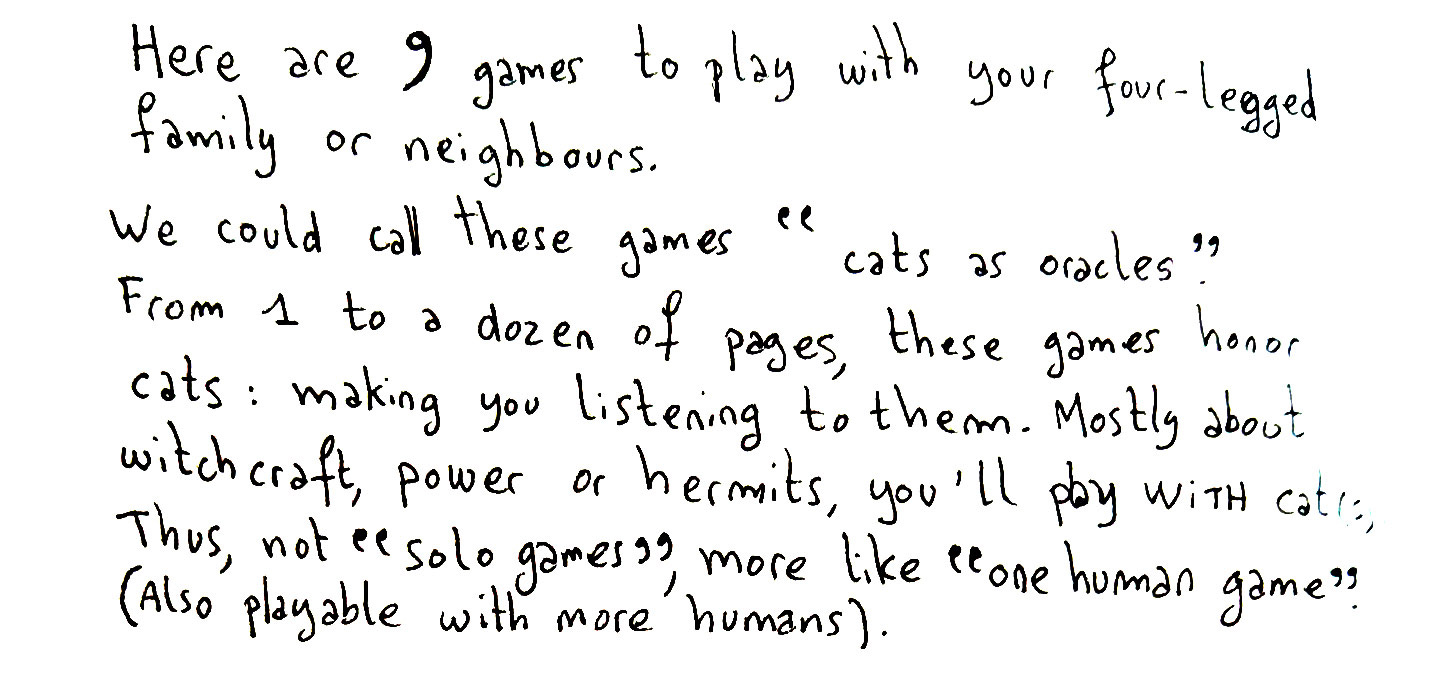 Here are 9 games to play with your four-legged
family or neighbours.
We could call these games “cats as oracles”.
From 1 to a dozen of pages, these games honor
cats : making you listening to them. Mostly about
witchcraft, power or hermits, you'll play WITH cats,
Thus, not “solo games”, more like “one human game”.
(Also playable with more humans).